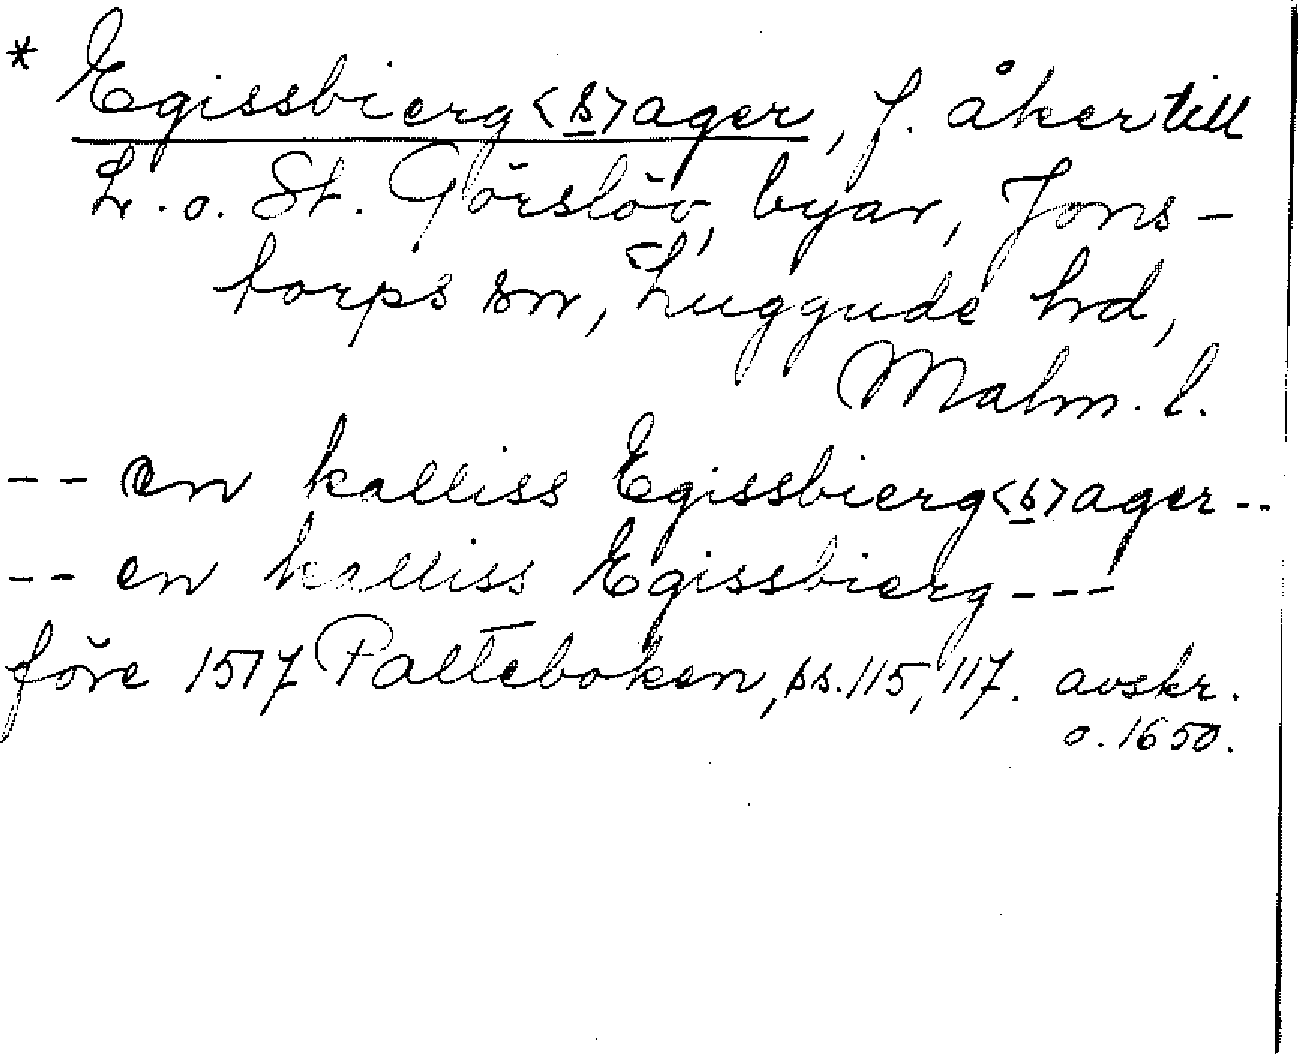 * Egissbierg<s>ager, f. åker till
L. o. St. Görslöv, byar, Jons-
torps sn, Luggude hd,
Malm. l.
-- en kalliss Egissbierg<s>ager --
-- en kalliss Egissbierg ---
före 1517 Palteboken, ss. 115, 117. avskr.
o. 1650.